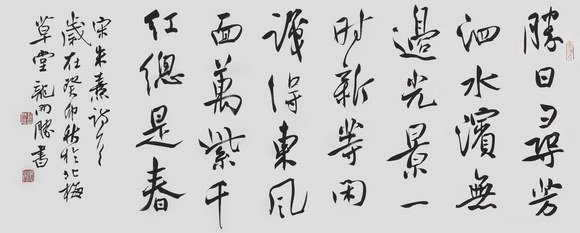 勝日尋芳
泗水濱無
邊光景一
时新等闲
識得東风
面萬紫千
红總是春
宋朱熹诗
歲在癸卯秋於北梅
草堂龍開勝書